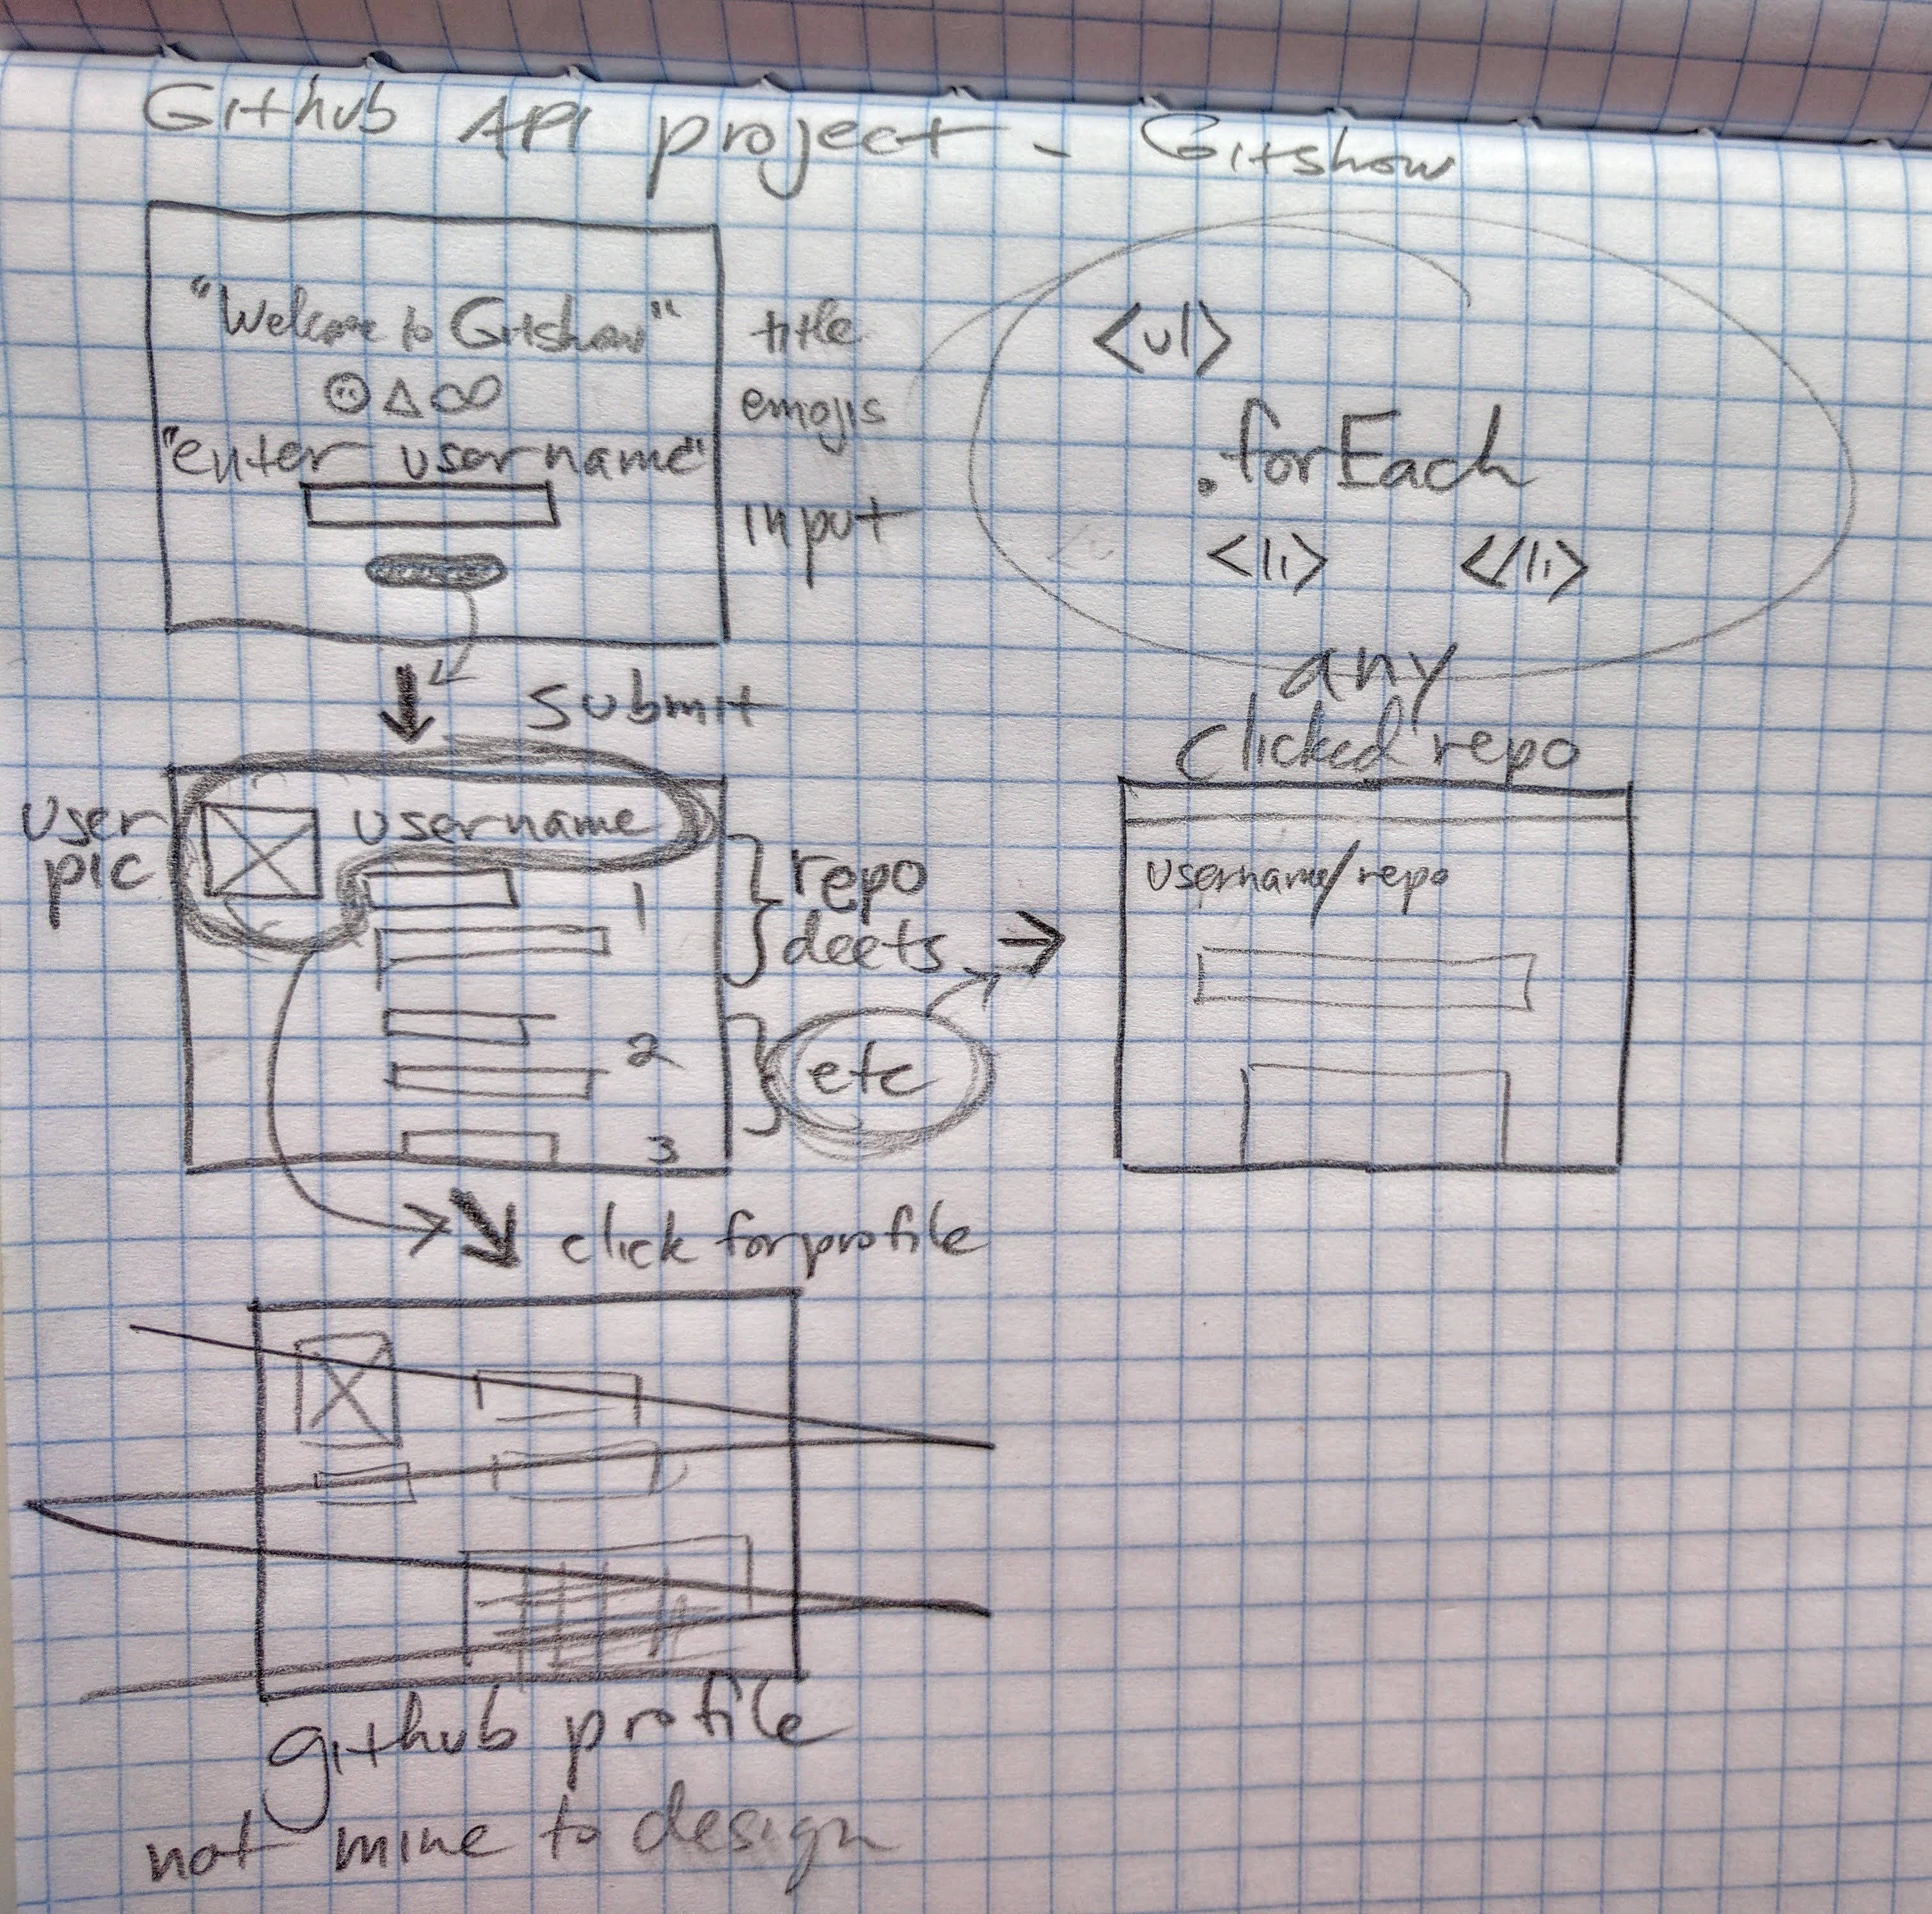 Github API project - Gitshow
"Welcome to Gitshow"
title
emojis
"enter username"
input
<ul>
.forEach
<li> </li>
submit
user
pic
username
1
repo
deets
2
etc
3
any
clicked repo
username/repo
click for profile
github profile
not mine to design